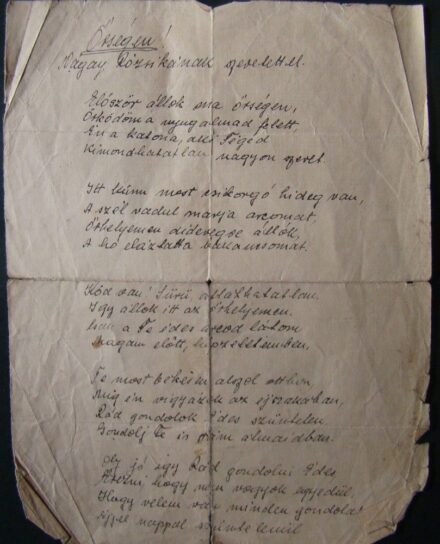 Őrségen!
Vágay Rózsikának szeretettel.
Először állok ma őrségen,
Őrködöm a nyugalmad felett,
Én a katona, aki Téged
Kimondhatatlan nagyon szeret
Itt künn most csikorgó hideg van,
A szél vadul marja arcomat,
Őrhelyemen dideregve állok,
A hó eláztatta bakancsomat.
Köd van! Sűrű, átláthatatlan.
Így állok itt az őrhelyemen.
a Te édes arcod látom
magam előtt, képzeletemben,
Te most békésen alszol otthon
Míg én vigyázok az éjszakában,
Rád gondolok Édes szüntelen
Gondolj Te is rám álmaidban.
Oly jó így Rád gondolni Édes
Érezni hogy nem vagyok egyedül,
Hogy velem van minden gondolat
éjjel nappal szüntelenül